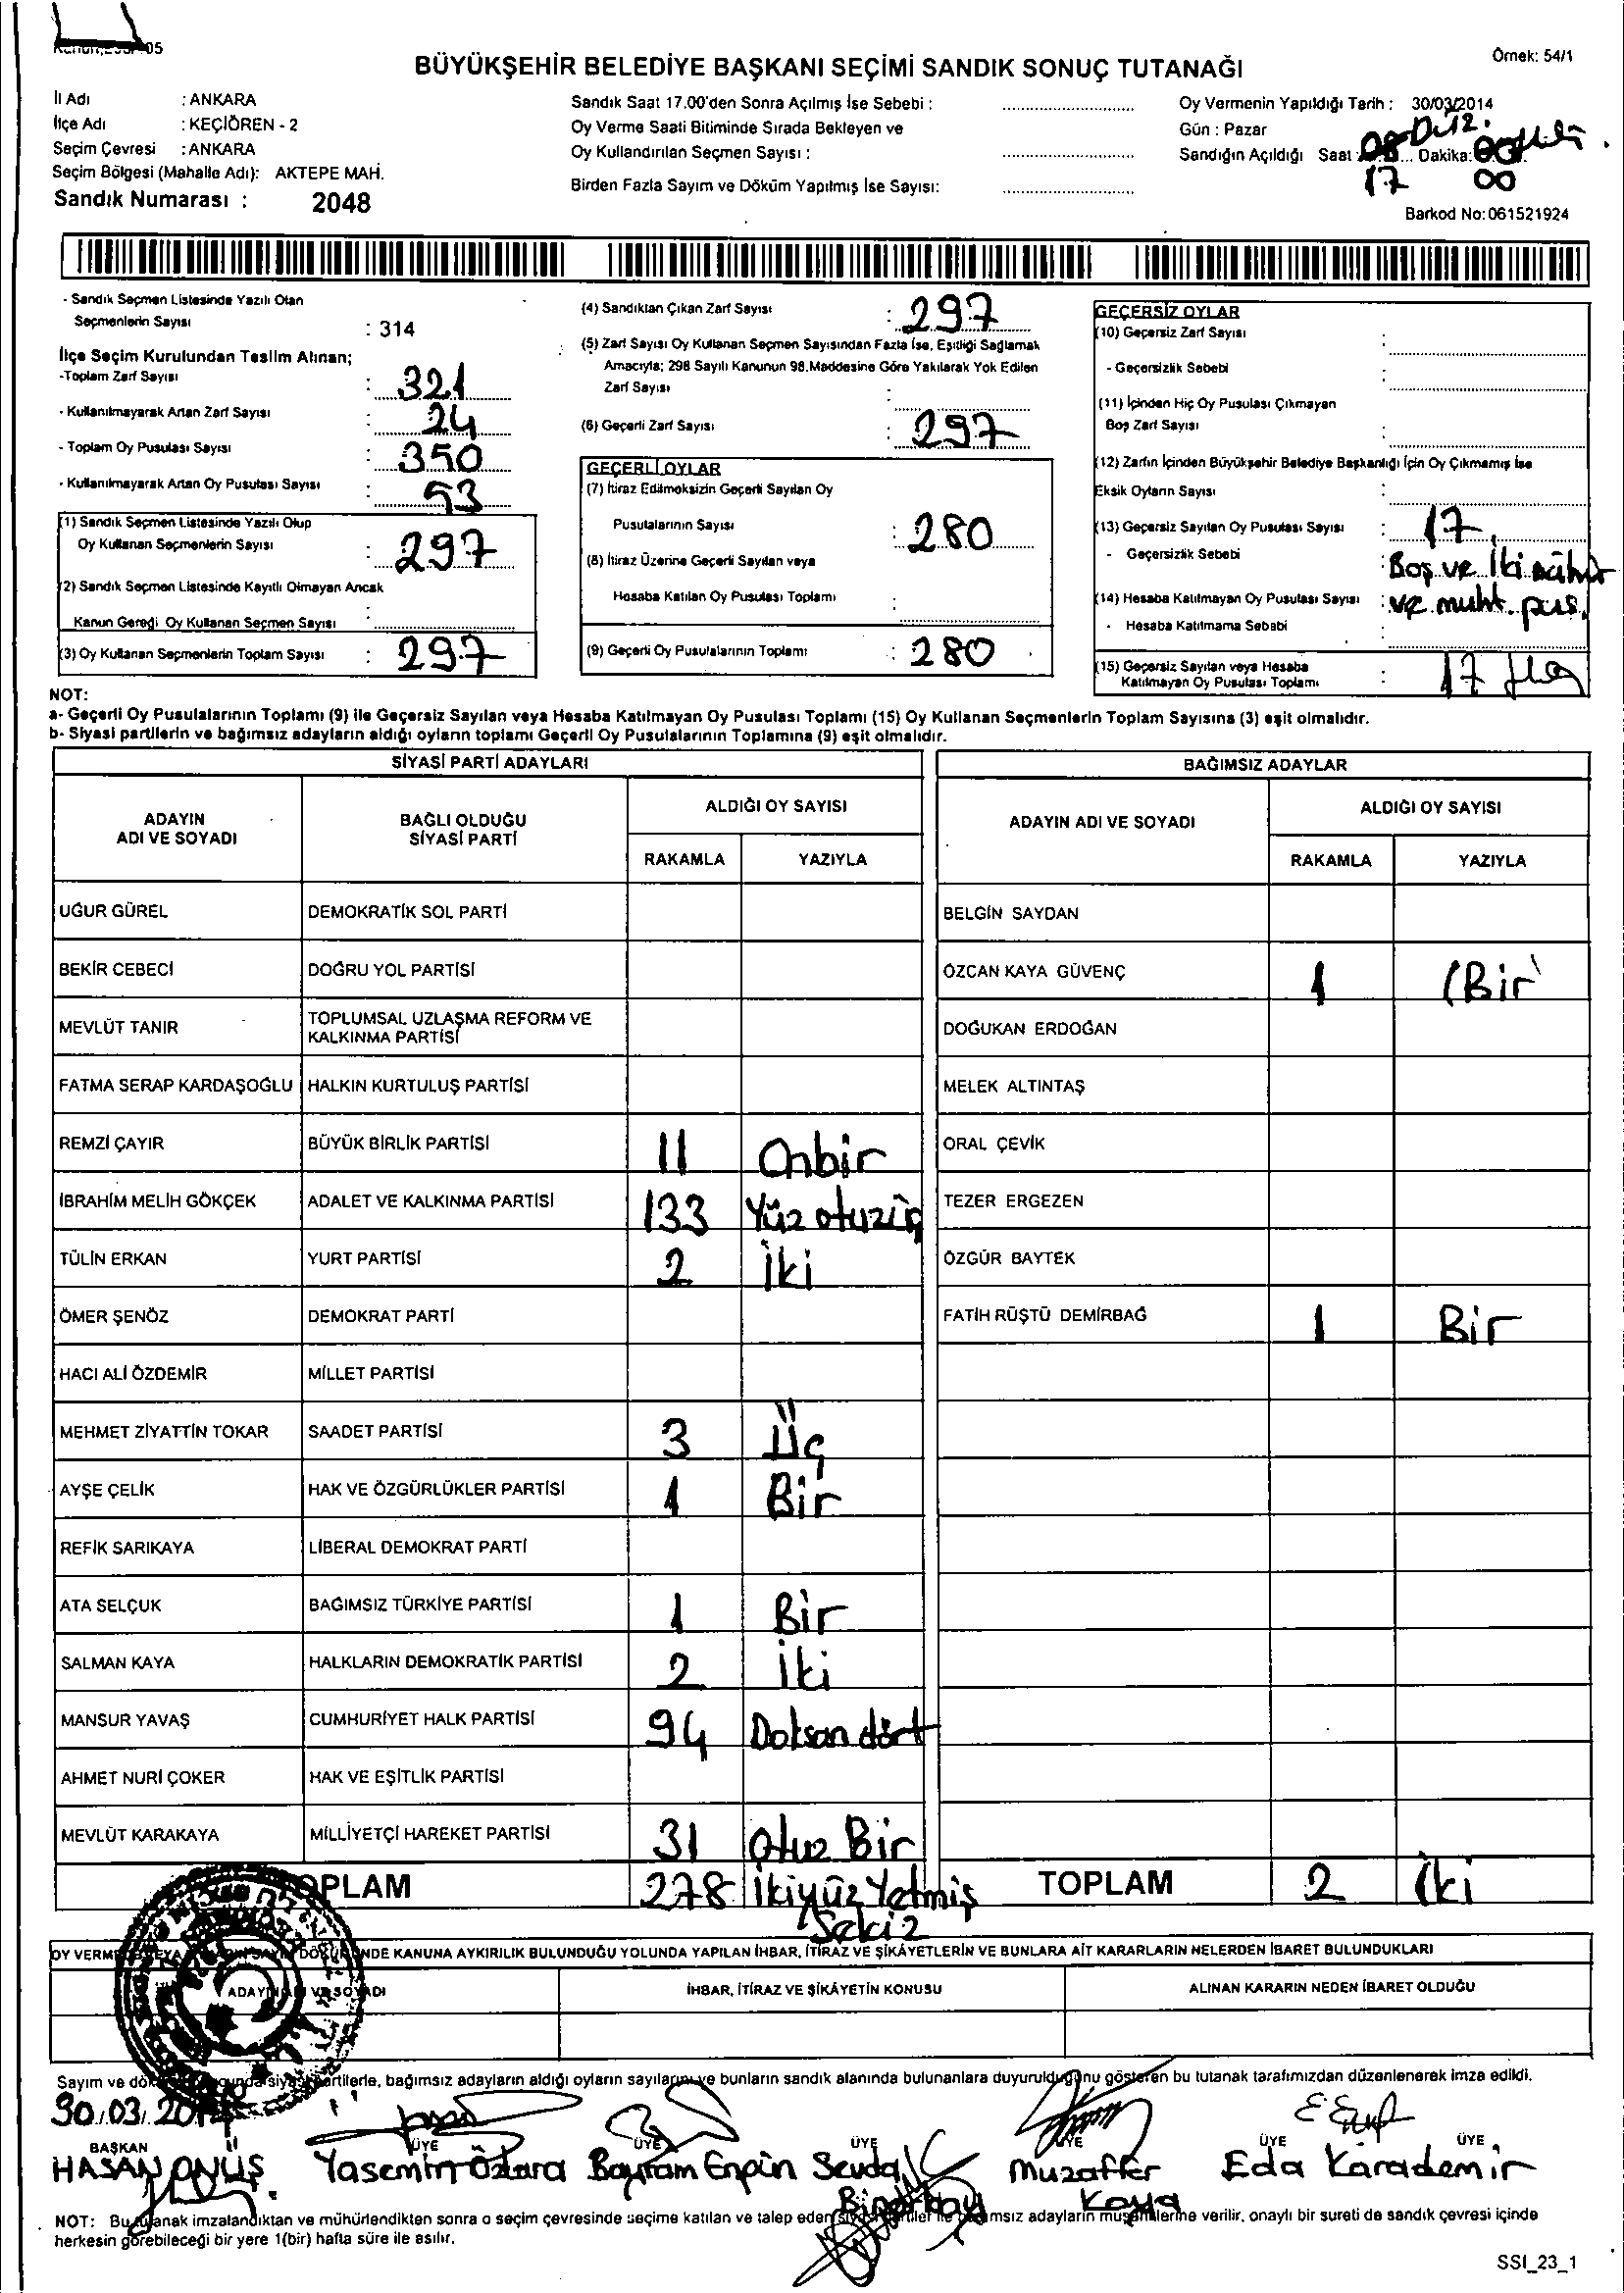 BÜYÜKŞEHİR BELEDİYE BAŞKANI SEÇİMİ SANDIK SONUÇ TUTANAĞI
Örnek: 54/1
İl Adı : ANKARA
İlçe Adı : KEÇİÖREN - 2
Seçim Çevresi : ANKARA
Seçim Bölgesi (Mahalle Adı): AKTEPE MAH.
Sandık Numarası : 2048
Sandık Saat 17.00'den Sonra Açılmış İse Sebebi :
Oy Verme Saati Bitiminde Sırada Bekleyen ve
Oy Kullandırılan Seçmen Sayısı :
Birden Fazla Sayım ve Döküm Yapılmış İse Sayısı:
Oy Vermenin Yapıldığı Tarih : 30/03/2014
Gün : Pazar
Sandığın Açıldığı Saat : Dakika:
17 00
Barkod No:061521924
- Sandık Seçmen Listesinde Yazılı Olan
Seçmenlerin Sayısı : 314
İlçe Seçim Kurulundan Teslim Alınan;
-Toplam Zarf Sayısı : 321
- Kullanılmayarak Artan Zarf Sayısı : 24
- Toplam Oy Pusulası Sayısı : 350
- Kullanılmayarak Artan Oy Pusulası Sayısı : 53
(1) Sandık Seçmen Listesinde Yazılı Olup
Oy Kullanan Seçmenlerin Sayısı : 297
(2) Sandık Seçmen Listesinde Kayıtlı Olmayan Ancak
Kanun Gereği Oy Kullanan Seçmen Sayısı :
(3) Oy Kullanan Seçmenlerin Toplam Sayısı : 297
(4) Sandıktan Çıkan Zarf Sayısı : 297
(5) Zarf Sayısı Oy Kullanan Seçmen Sayısından Fazla İse, Eşitliği Sağlamak
Amacıyla; 298 Sayılı Kanunun 98.Maddesine Göre Yakılarak Yok Edilen
Zarf Sayısı :
(6) Geçerli Zarf Sayısı : 297
GEÇERLİ OYLAR
(7) İtiraz Edilmeksizin Geçerli Sayılan Oy
Pusulalarının Sayısı : 280
(8) İtiraz Üzerine Geçerli Sayılan veya
Hesaba Katılan Oy Pusulası Toplamı :
(9) Geçerli Oy Pusulalarının Toplamı : 280
GEÇERSİZ OYLAR
(10) Geçersiz Zarf Sayısı :
- Geçersizlik Sebebi :
(11) İçinden Hiç Oy Pusulası Çıkmayan
Boş Zarf Sayısı :
(12) Zarfın İçinden Büyükşehir Belediye Başkanlığı İçin Oy Çıkmamış İse
Eksik Oyların Sayısı :
(13) Geçersiz Sayılan Oy Pusulası Sayısı : 17
- Geçersizlik Sebebi : Boş ve İki mühür
(14) Hesaba Katılmayan Oy Pusulası Sayısı : ve muht. pus.
- Hesaba Katılmama Sebebi :
(15) Geçersiz Sayılan veya Hesaba
Katılmayan Oy Pusulası Toplamı : 17
NOT:
a- Geçerli Oy Pusulalarının Toplamı (9) ile Geçersiz Sayılan veya Hesaba Katılmayan Oy Pusulası Toplamı (15) Oy Kullanan Seçmenlerin Toplam Sayısına (3) eşit olmalıdır.
b- Siyasi partilerin ve bağımsız adayların aldığı oyların toplamı Geçerli Oy Pusulalarının Toplamına (9) eşit olmalıdır.
SİYASİ PARTİ ADAYLARI
ADAYIN ADI VE SOYADI BAĞLI OLDUĞU SİYASİ PARTİ ALDIĞI OY SAYISI
RAKAMLA YAZIYLA
UĞUR GÜREL DEMOKRATİK SOL PARTİ
BEKİR CEBECİ DOĞRU YOL PARTİSİ
MEVLÜT TANIR TOPLUMSAL UZLAŞMA REFORM VE KALKINMA PARTİSİ
FATMA SERAP KARDAŞOĞLU HALKIN KURTULUŞ PARTİSİ
REMZİ ÇAYIR BÜYÜK BİRLİK PARTİSİ 11 Onbir
İBRAHİM MELİH GÖKÇEK ADALET VE KALKINMA PARTİSİ 133 Yüz otuzüç
TÜLİN ERKAN YURT PARTİSİ 2 İki
ÖMER ŞENÖZ DEMOKRAT PARTİ
HACI ALİ ÖZDEMİR MİLLET PARTİSİ
MEHMET ZİYATTİN TOKAR SAADET PARTİSİ 3 Üç
AYŞE ÇELİK HAK VE ÖZGÜRLÜKLER PARTİSİ 1 Bir
REFİK SARIKAYA LİBERAL DEMOKRAT PARTİ
ATA SELÇUK BAĞIMSIZ TÜRKİYE PARTİSİ 1 Bir
SALMAN KAYA HALKLARIN DEMOKRATİK PARTİSİ 2 İki
MANSUR YAVAŞ CUMHURİYET HALK PARTİSİ 94 Doksan dört
AHMET NURİ ÇOKER HAK VE EŞİTLİK PARTİSİ
MEVLÜT KARAKAYA MİLLİYETÇİ HAREKET PARTİSİ 31 Otuz Bir
TOPLAM 278 İkiyüz Yetmiş Sekiz
BAĞIMSIZ ADAYLAR
ADAYIN ADI VE SOYADI ALDIĞI OY SAYISI
RAKAMLA YAZIYLA
BELGİN SAYDAN
ÖZCAN KAYA GÜVENÇ 1 (Bir
DOĞUKAN ERDOĞAN
MELEK ALTINTAŞ
ORAL ÇEVİK
TEZER ERGEZEN
ÖZGÜR BAYTEK
FATİH RÜŞTÜ DEMİRBAĞ 1 Bir
TOPLAM 2 İki
OY VERME DÖKÜMÜNDE KANUNA AYKIRILIK BULUNDUĞU YOLUNDA YAPILAN İHBAR, İTİRAZ VE ŞİKÂYETLERİN VE BUNLARA AİT KARARLARIN NELERDEN İBARET BULUNDUKLARI
ADAYIN ADI VE SOYADI İHBAR, İTİRAZ VE ŞİKÂYETİN KONUSU ALINAN KARARIN NEDEN İBARET OLDUĞU
Sayım ve siyasi partilerle, bağımsız adayların aldığı oyların sayılarını ve bunların sandık alanında bulunanlara duyurulduğunu gösteren bu tutanak tarafımızdan düzenlenerek imza edildi.
30.03.2014
BAŞKAN ÜYE ÜYE ÜYE ÜYE ÜYE ÜYE
HASAN Yasemin Bayram Sevda Muzaffer Kaya Eda Karademir
NOT: Bu tutanak imzalandıktan ve mühürlendikten sonra o seçim çevresinde seçime katılan ve talep eden siyasi partiler ile bağımsız adayların müşahitlerine verilir, onaylı bir sureti de sandık çevresi içinde
herkesin görebileceği bir yere 1(bir) hafta süre ile asılır.
SSI_23_1